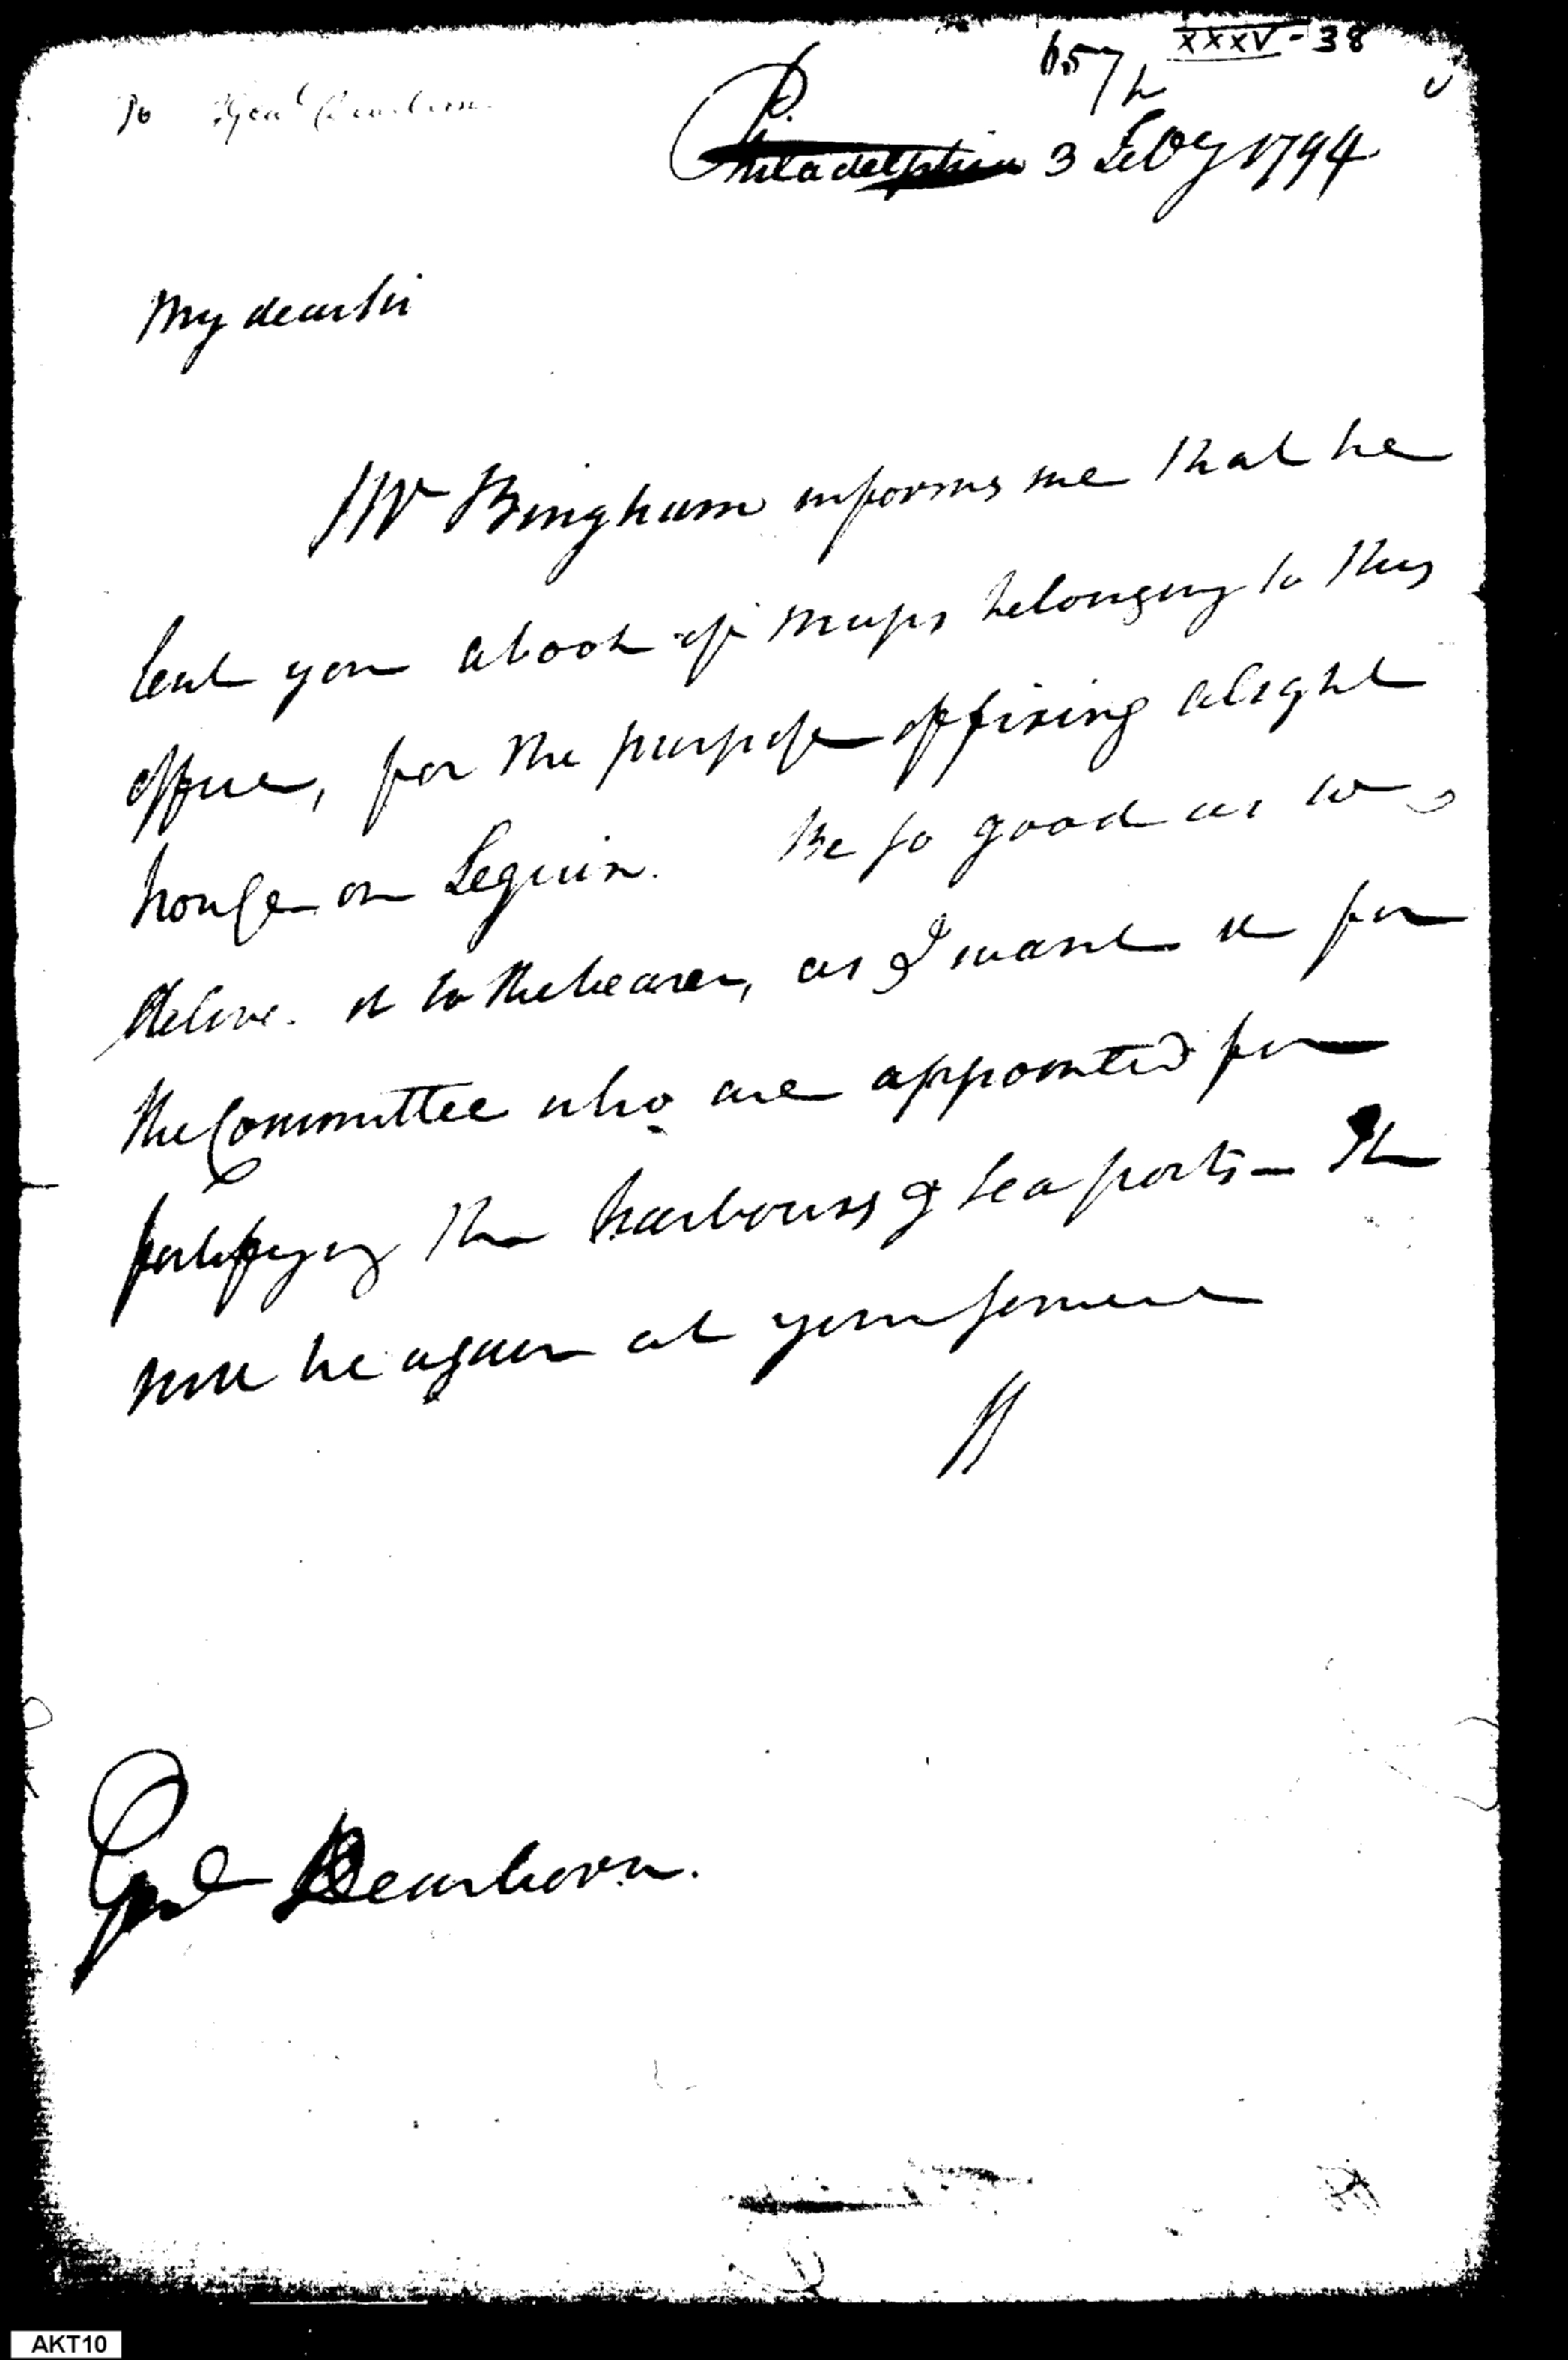 XXXV - 38
657
To Genl Dearborn
Philadelphia 3 Feby 1794
My dear Sir
Mr Bingham informs me that he
lent you a book of maps belonging to this
office, for the purpose of fixing a light
house on Seguin. Be so good as to
delive. it to the bearer, as I want it for
the Committee who are appointed for
fortifying the harbours & sea ports – It
will be again at your service
Genl Dearborn.
AKT10